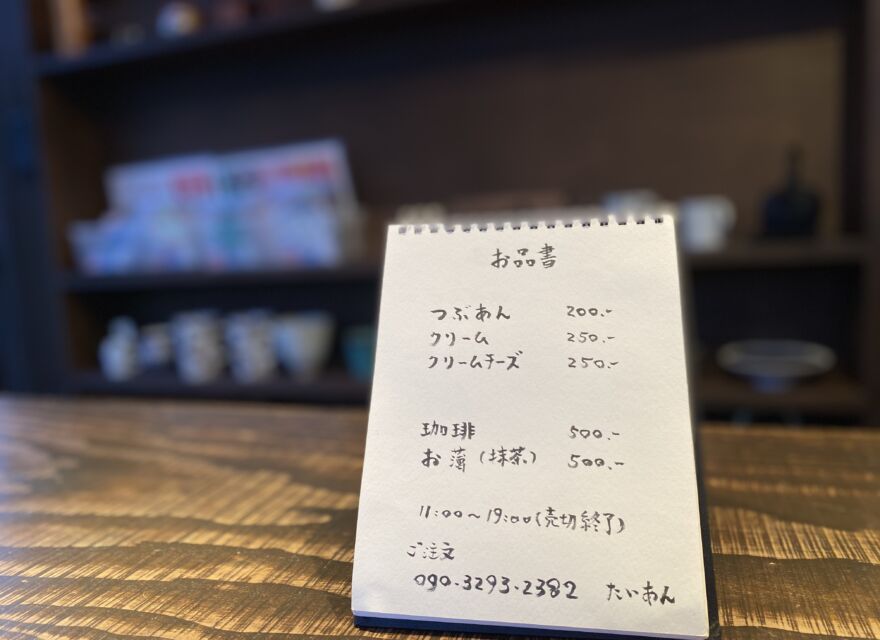 お品書
つぶあん 200.-
クリーム 250.-
クリームチーズ 250.-
珈琲 500.-
お薄(抹茶) 500.-
11:00〜19:00(売切終了)
ご注文
090-3293-2382 たいあん